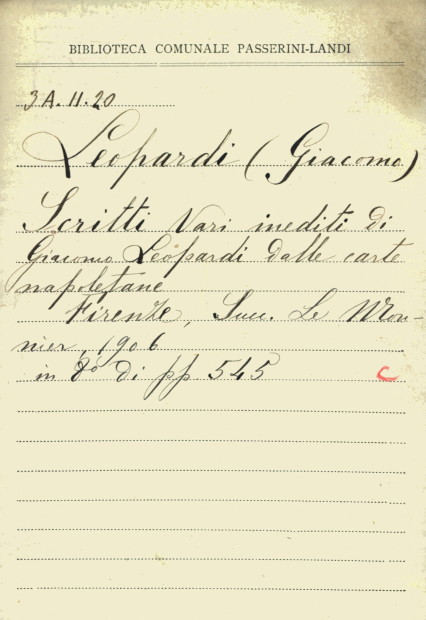 BIBLIOTECA COMUNALE PASSERINI-LANDI
3A.11.20
Leopardi (Giacomo)
Scritti vari inediti di
Giacomo Leopardi dalle carte
napoletane
Firenze, Succ. Le Mon-
nier, 1906
in 8º di pp 545
C